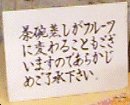 茶碗蒸しがフルーフ
に変わることもござ
いますのであらかじ
めご了承下さい。